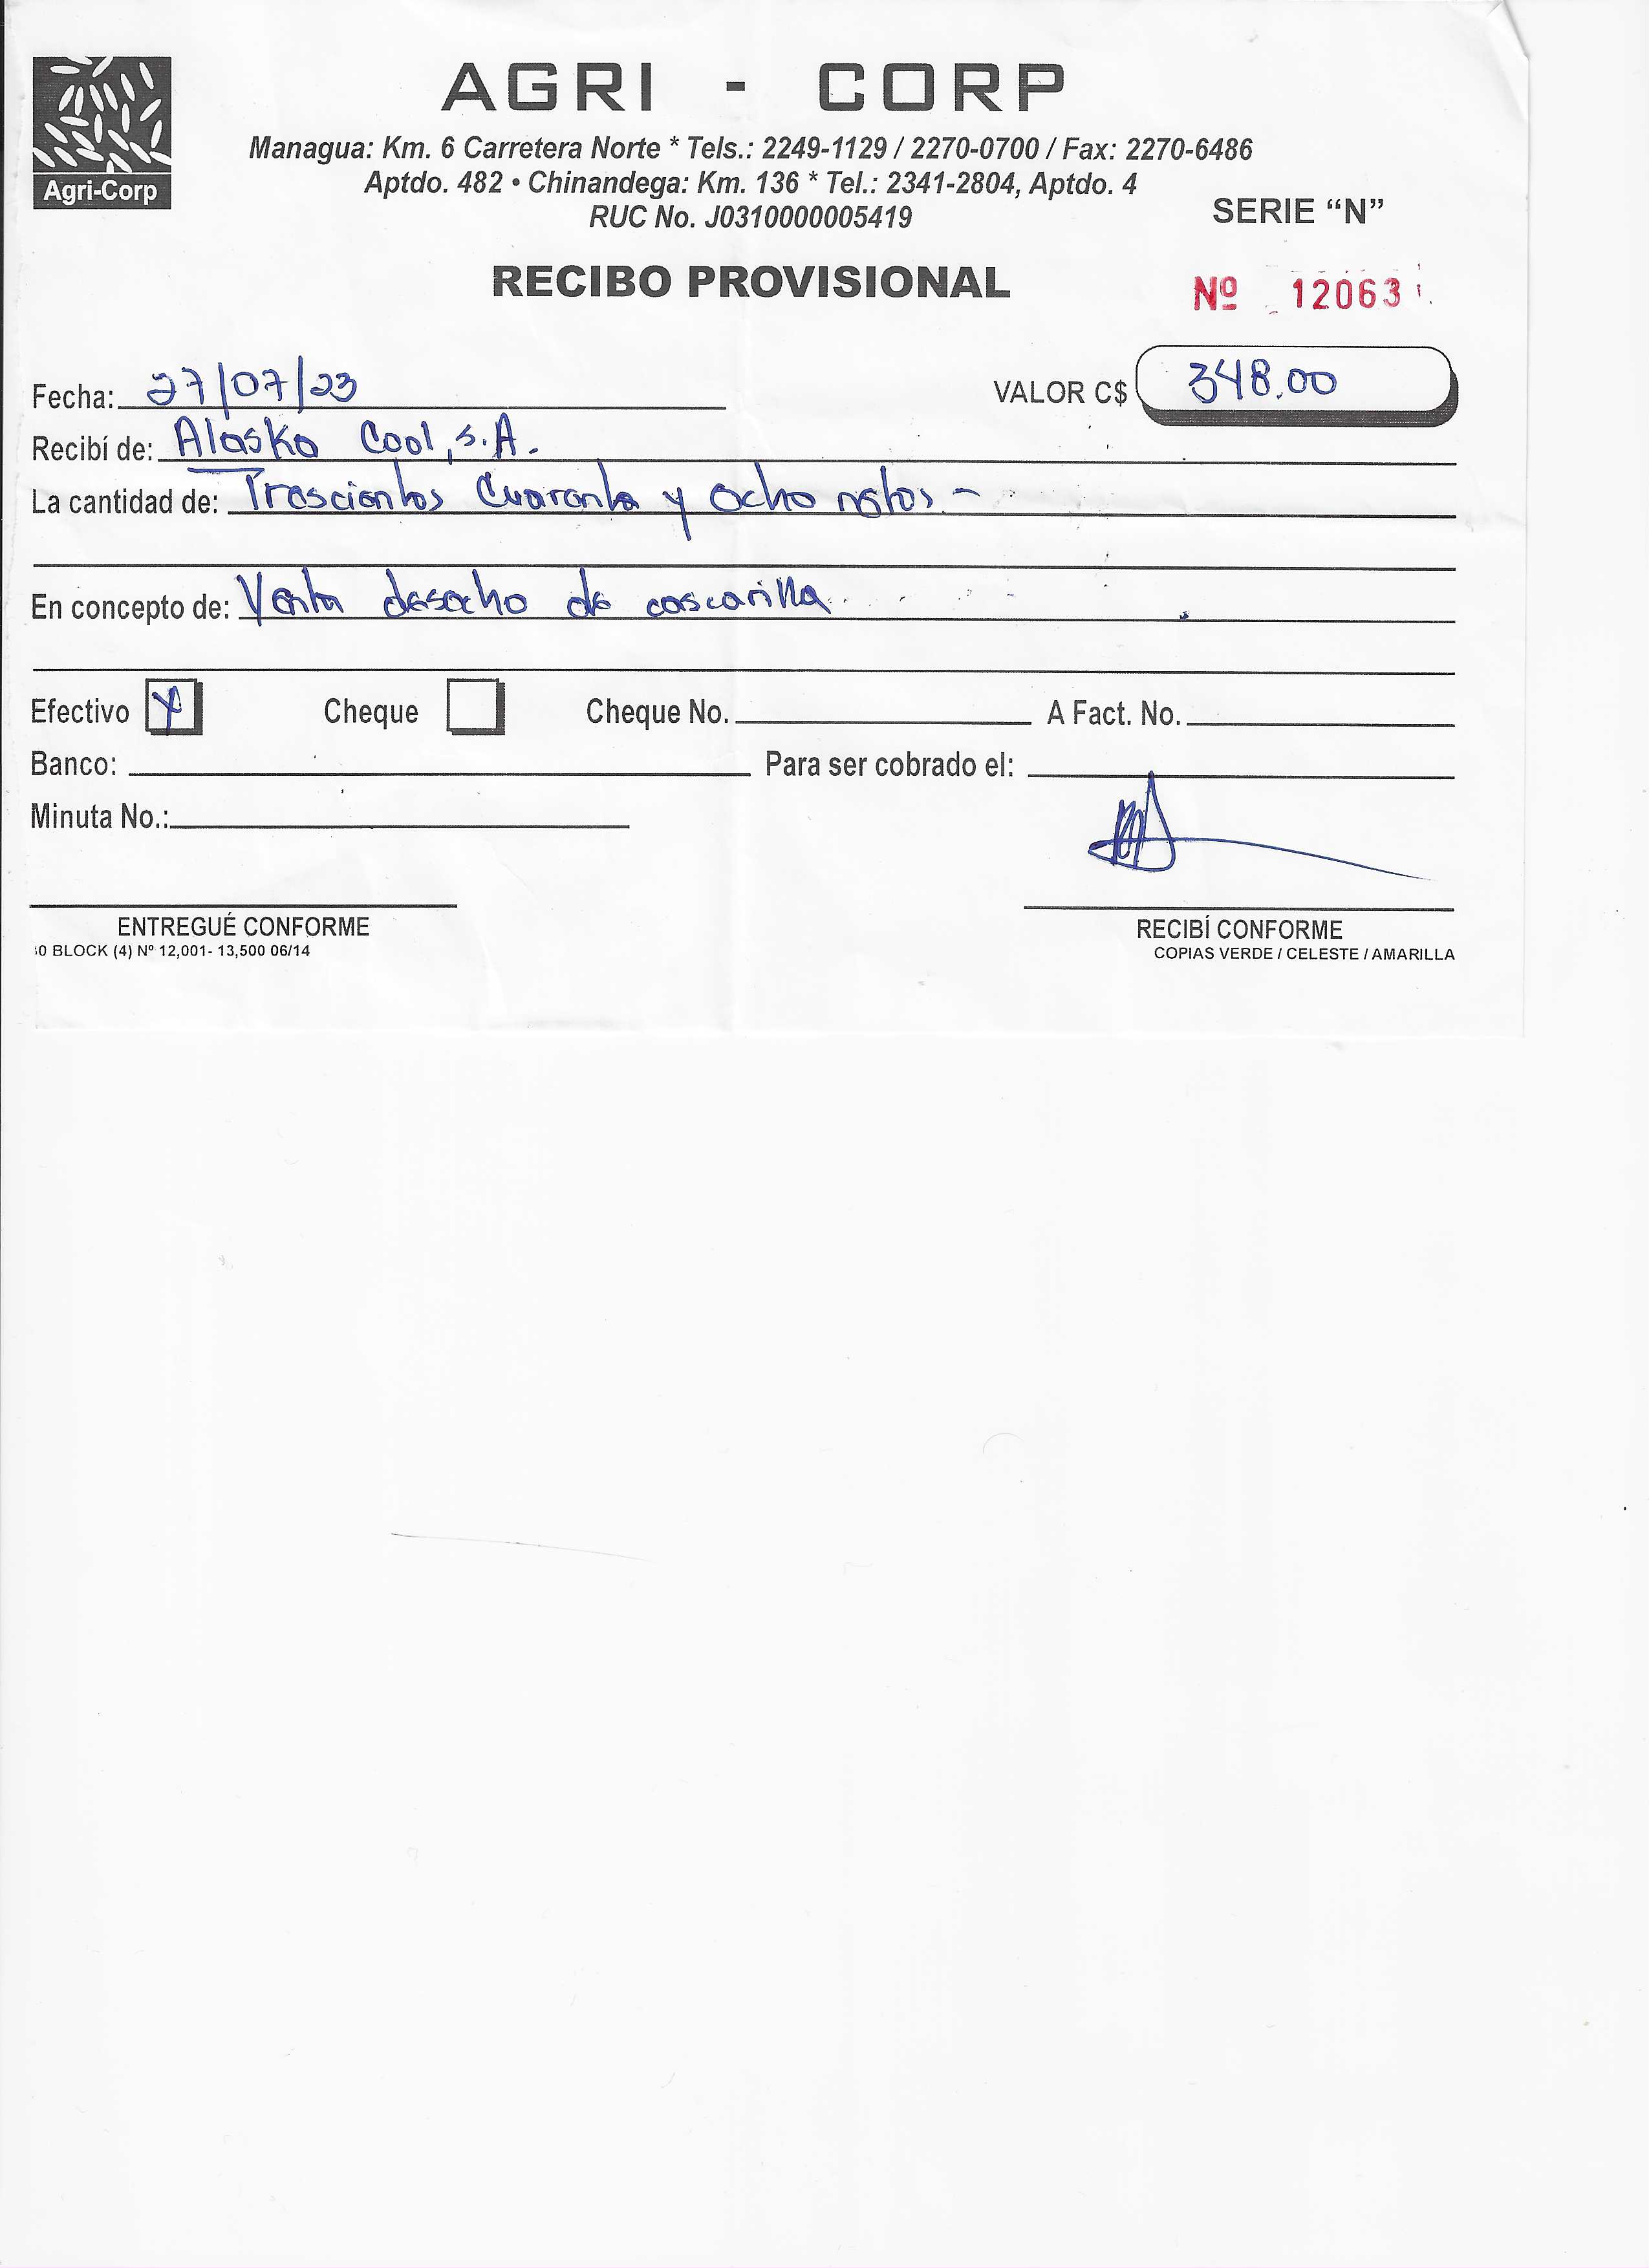 AGRI - CORP
Agri-Corp
Managua: Km. 6 Carretera Norte * Tels.: 2249-1129 / 2270-0700 / Fax: 2270-6486
Aptdo. 482 • Chinandega: Km. 136 * Tel.: 2341-2804, Aptdo. 4
RUC No. J0310000005419
SERIE “N”
RECIBO PROVISIONAL
Nº 12063
Fecha: 27/07/23 VALOR C$ 348.00
Recibí de: Alaska Cool, S.A.
La cantidad de: Trescientos Cuarenta y Ocho netos -
En concepto de: Venta desecho de cascarilla
Efectivo X Cheque Cheque No. A Fact. No.
Banco: Para ser cobrado el:
Minuta No.:
ENTREGUÉ CONFORME RECIBÍ CONFORME
0 BLOCK (4) Nº 12,001- 13,500 06/14 COPIAS VERDE / CELESTE / AMARILLA